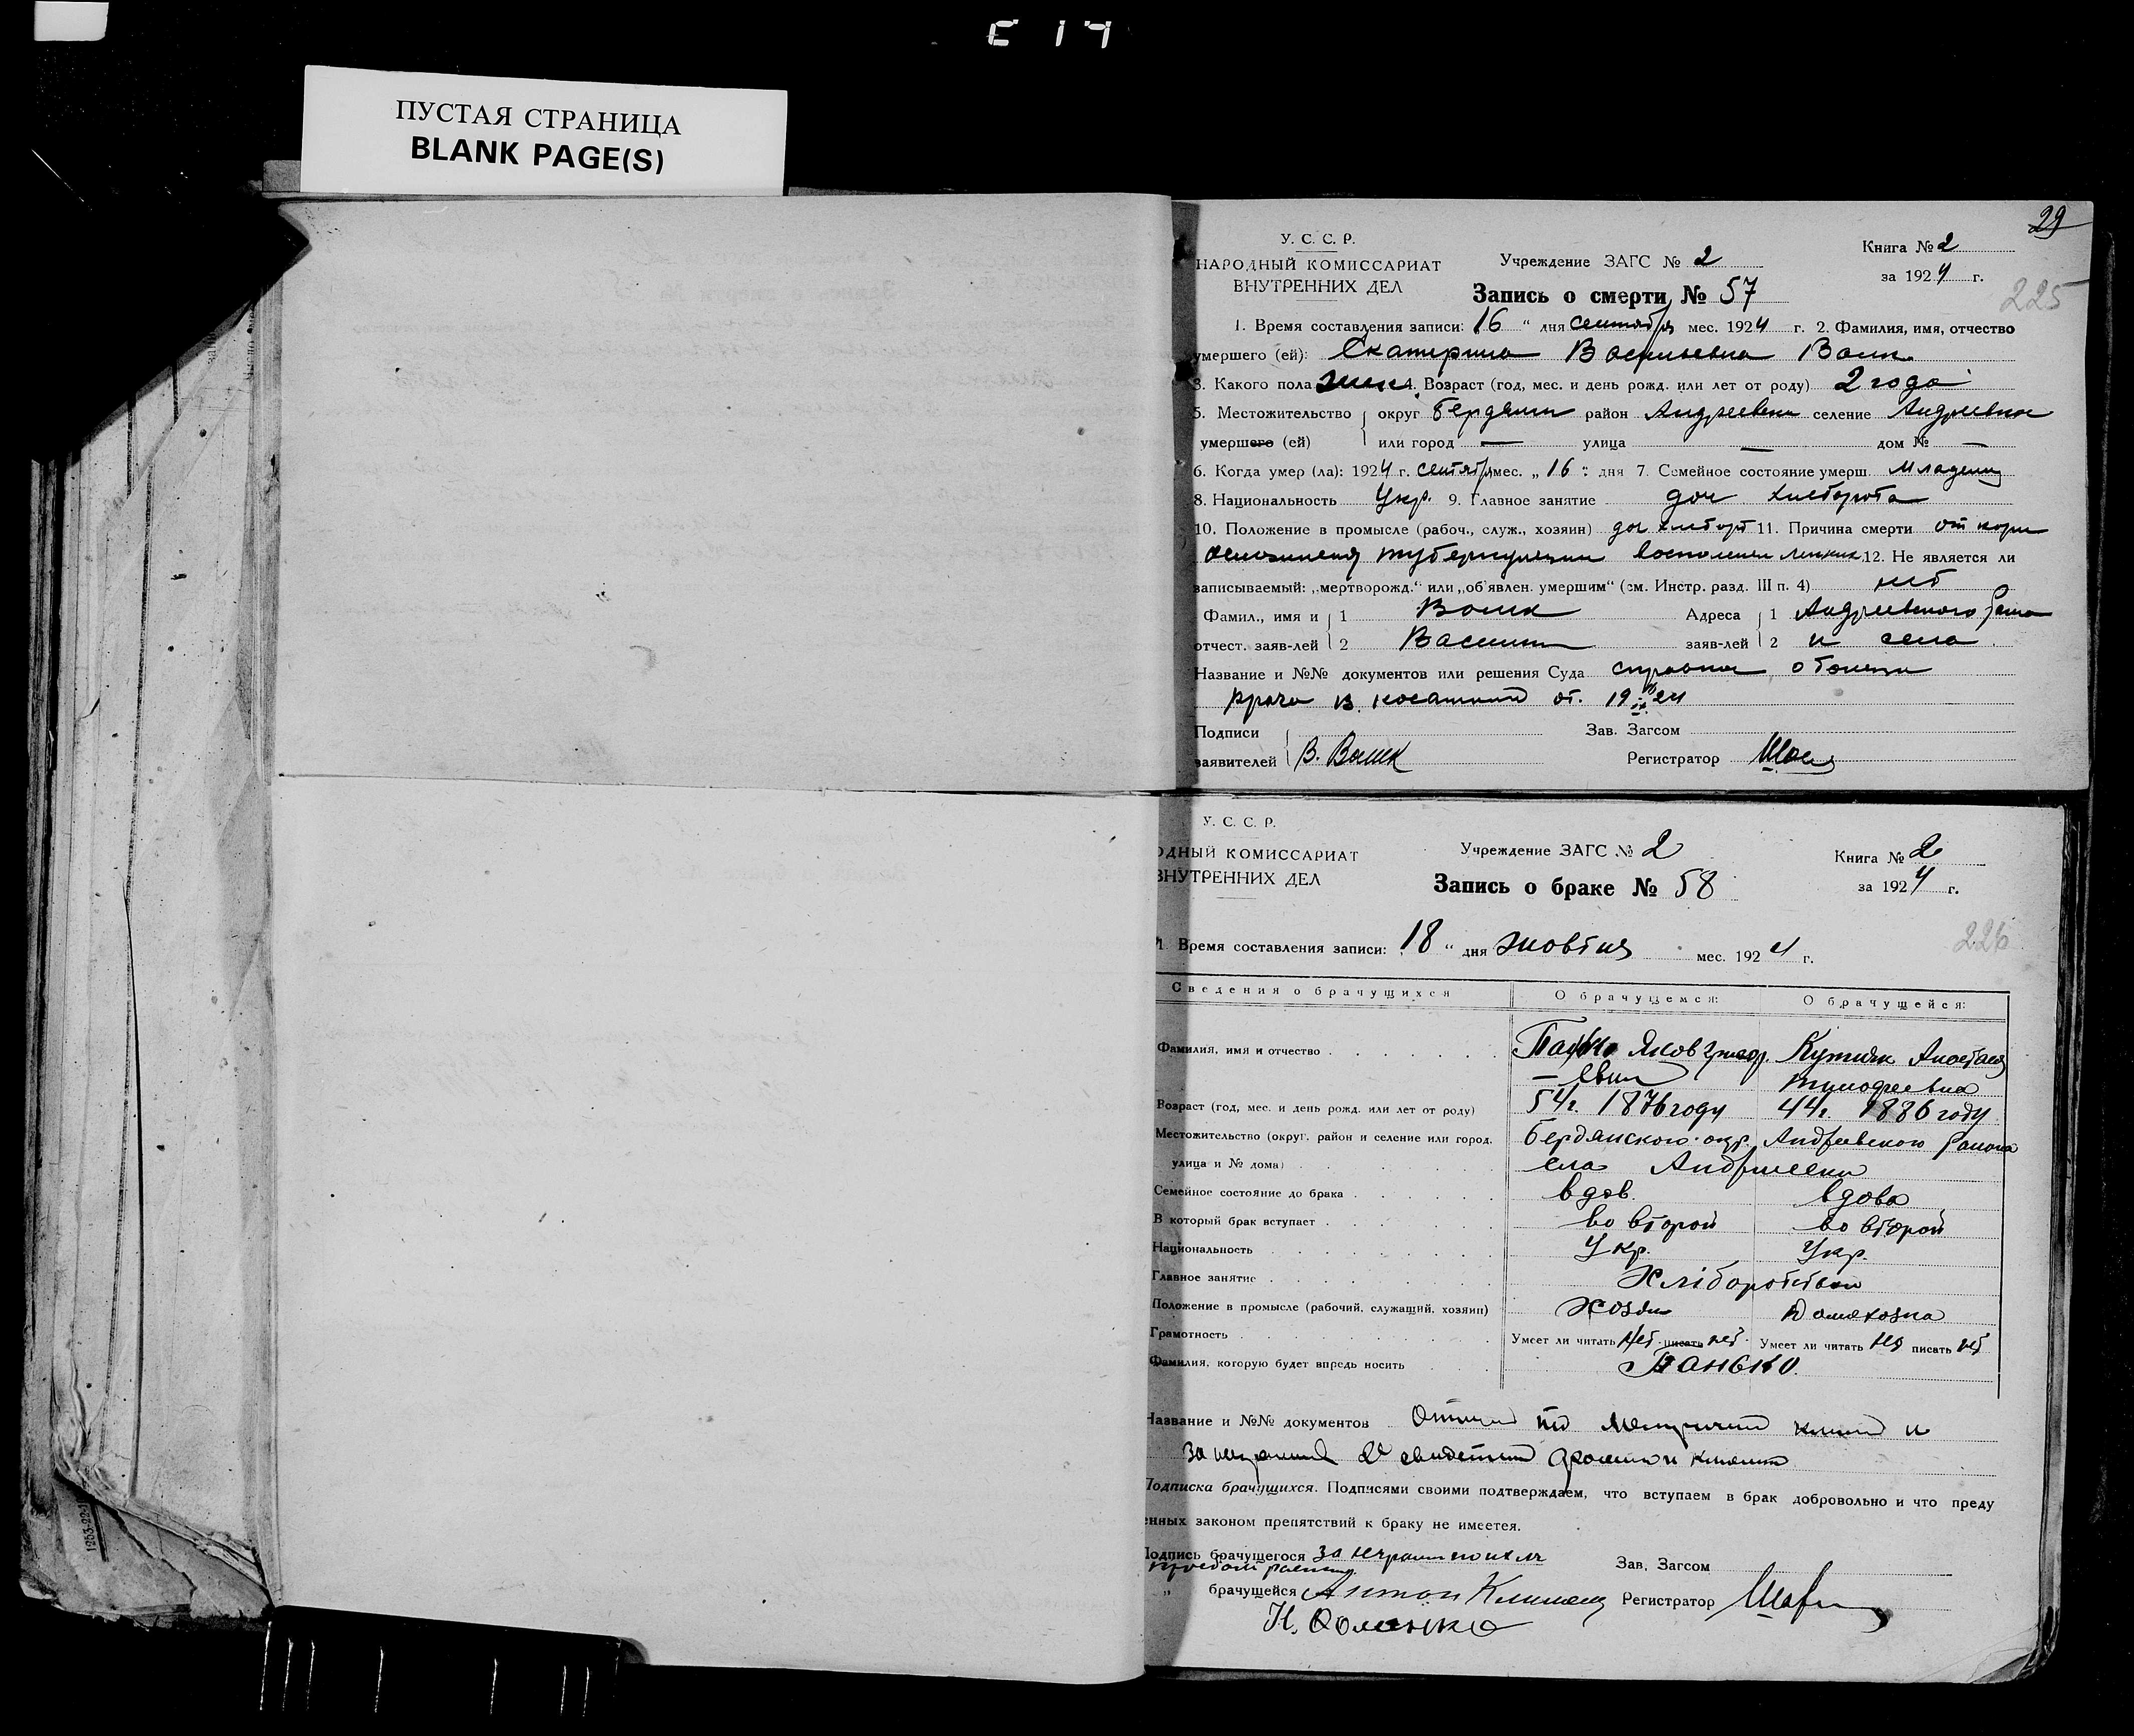 E 14
ПУСТАЯ СТРАНИЦА
BLANK PAGE(S)
29
У. С. С. Р.
НАРОДНЫЙ КОМИССАРИАТ
ВНУТРЕННИХ ДЕЛ
Учреждение ЗАГС № 2
Книга № 2
за 1924 г.
Запись о смерти № 57
225
1. Время составления записи: 16 " дня сентября мес. 1924 г. 2. Фамилия, имя, отчество
умершего (ей): Екатерина Васильевна
3. Какого пола жен 4. Возраст (год, мес. и день рожд. или лет от роду) 2 года
5. Местожительство округ Бердянск район Андреевка селение Андреевка
умершего (ей) или город — улица — дом № —
6. Когда умер (ла): 1924 г. сентября мес. „ 16 " дня 7. Семейное состояние умерш. младенец
8. Национальность Укр. 9. Главное занятие доч хлебороба
10. Положение в промысле (рабоч., служ., хозяин) доч хлебороб 11. Причина смерти от кори
12. Не является ли
записываемый: „мертворожд." или „об'явлен. умершим" (см. Инстр. разд. III п. 4) нет
Фамил., имя и 1 Адреса 1 Андреевского района
отчест. заяв-лей 2 Василий заяв-лей 2 и села
Название и №№ документов или решения Суда справка
врача от. 19 IX 24
Подписи Зав. Загсом
заявителей В. Регистратор
У. С. С. Р.
ОДНЫЙ КОМИССАРИАТ
ВНУТРЕННИХ ДЕЛ
Учреждение ЗАГС № 2
Книга № 2
за 1924 г.
Запись о браке № 58
226
1. Время составления записи: 18 " дня жовтня мес. 1924 г.
Сведения о брачущихся О брачущемся: О брачущейся:
Фамилия, имя и отчество Яков Григор. Анастасия
— евич Тимофеевна
Возраст (год, мес. и день рожд. или лет от роду) 54 г. 1876 году 44 г. 1886 году
Местожительство (округ. район и селение или город, Бердянского окр. Андреевского района
улица и № дома) села Андреевки
Семейное состояние до брака вдов. вдова
В который брак вступает во второй во второй
Национальность Укр. Укр.
Главное занятие Хліборобство
Положение в промысле (рабочий, служащий, хозяин) хозяин домохозяйка
Грамотность Умеет ли читать нет писать нет Умеет ли читать нет писать нет
Фамилия, которую будет впредь носить Панько.
Название и №№ документов
за неграмотных
Подписка брачущихся. Подписями своими подтверждаем, что вступаем в брак добровольно и что преду
енных законом препятствий к браку не имеется.
Подпись брачущегося за неграмотных Зав. Загсом
„ брачущейся Антон Регистратор
Н.
1253-22-1